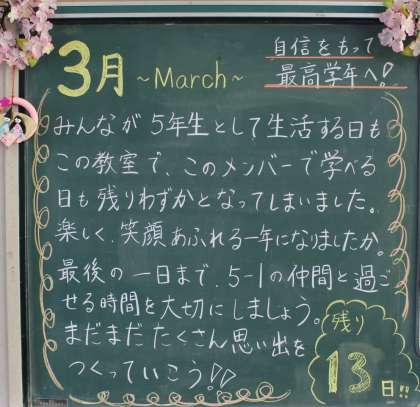 3月 ~March~
自信をもって
最高学年へ!
みんなが5年生として生活する日も
この教室で、このメンバーで学べる
日も残りわずかとなってしまいました。
楽しく、笑顔あふれる一年になりましたか。
最後の一日まで、5-1の仲間と過ご
せる時間を大切にしましょう。
まだまだたくさん思い出を
つくっていこう!!
残り
13
日!!